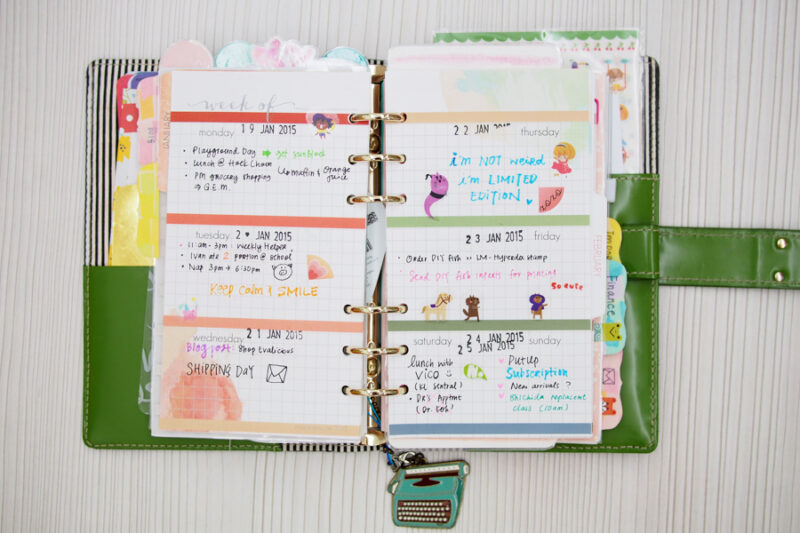 week of
monday 19 JAN 2015
• Playground Day ➡ get sunblock
• Lunch @ Hock Choon
• PM grocery shopping
→ Q.E.M.
muffin & orange
juice
tuesday 20 JAN 2015
• 11 am - 3pm : Weekly Helper
• Ivan ate 2 portion @ school
• Nap 3pm → 6:30pm
KEEP CALM & SMILE
wednesday 21 JAN 2015
Blog post: Shop Evalicious
SHIPPING DAY
22 JAN 2015 thursday
i'm NOT weird
i'm LIMITED
EDITION
XOXO
23 JAN 2015 friday
• Order DIY fish LM- stamp
Send DIY fish for printing
so cute
saturday 24 JAN 2015 sunday
25 JAN 2015
lunch with
VICO
(KL Sentral)
• DR's Apptmt
• Put up
Subscription
• New arrivals ?
• replacement
class (10am)
JANUARY
Blog
FEBRUARY
Finance